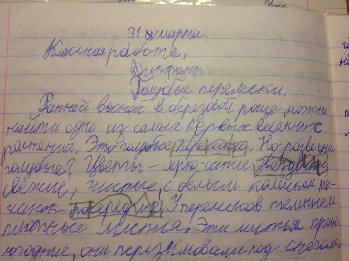 31 марта.
Классная работа.
Диктант
Голубые перелески.
Ранней весной в березовой роще можно
найти одно из самых первых весенних
растений. Это голубая Но разве она
голубая? Цветы – ярко синие
свежие, чистые, с белым
чинок У перелесков темные
плотные листья. Эти листья прош
логодние, они перезимовали под снегом,